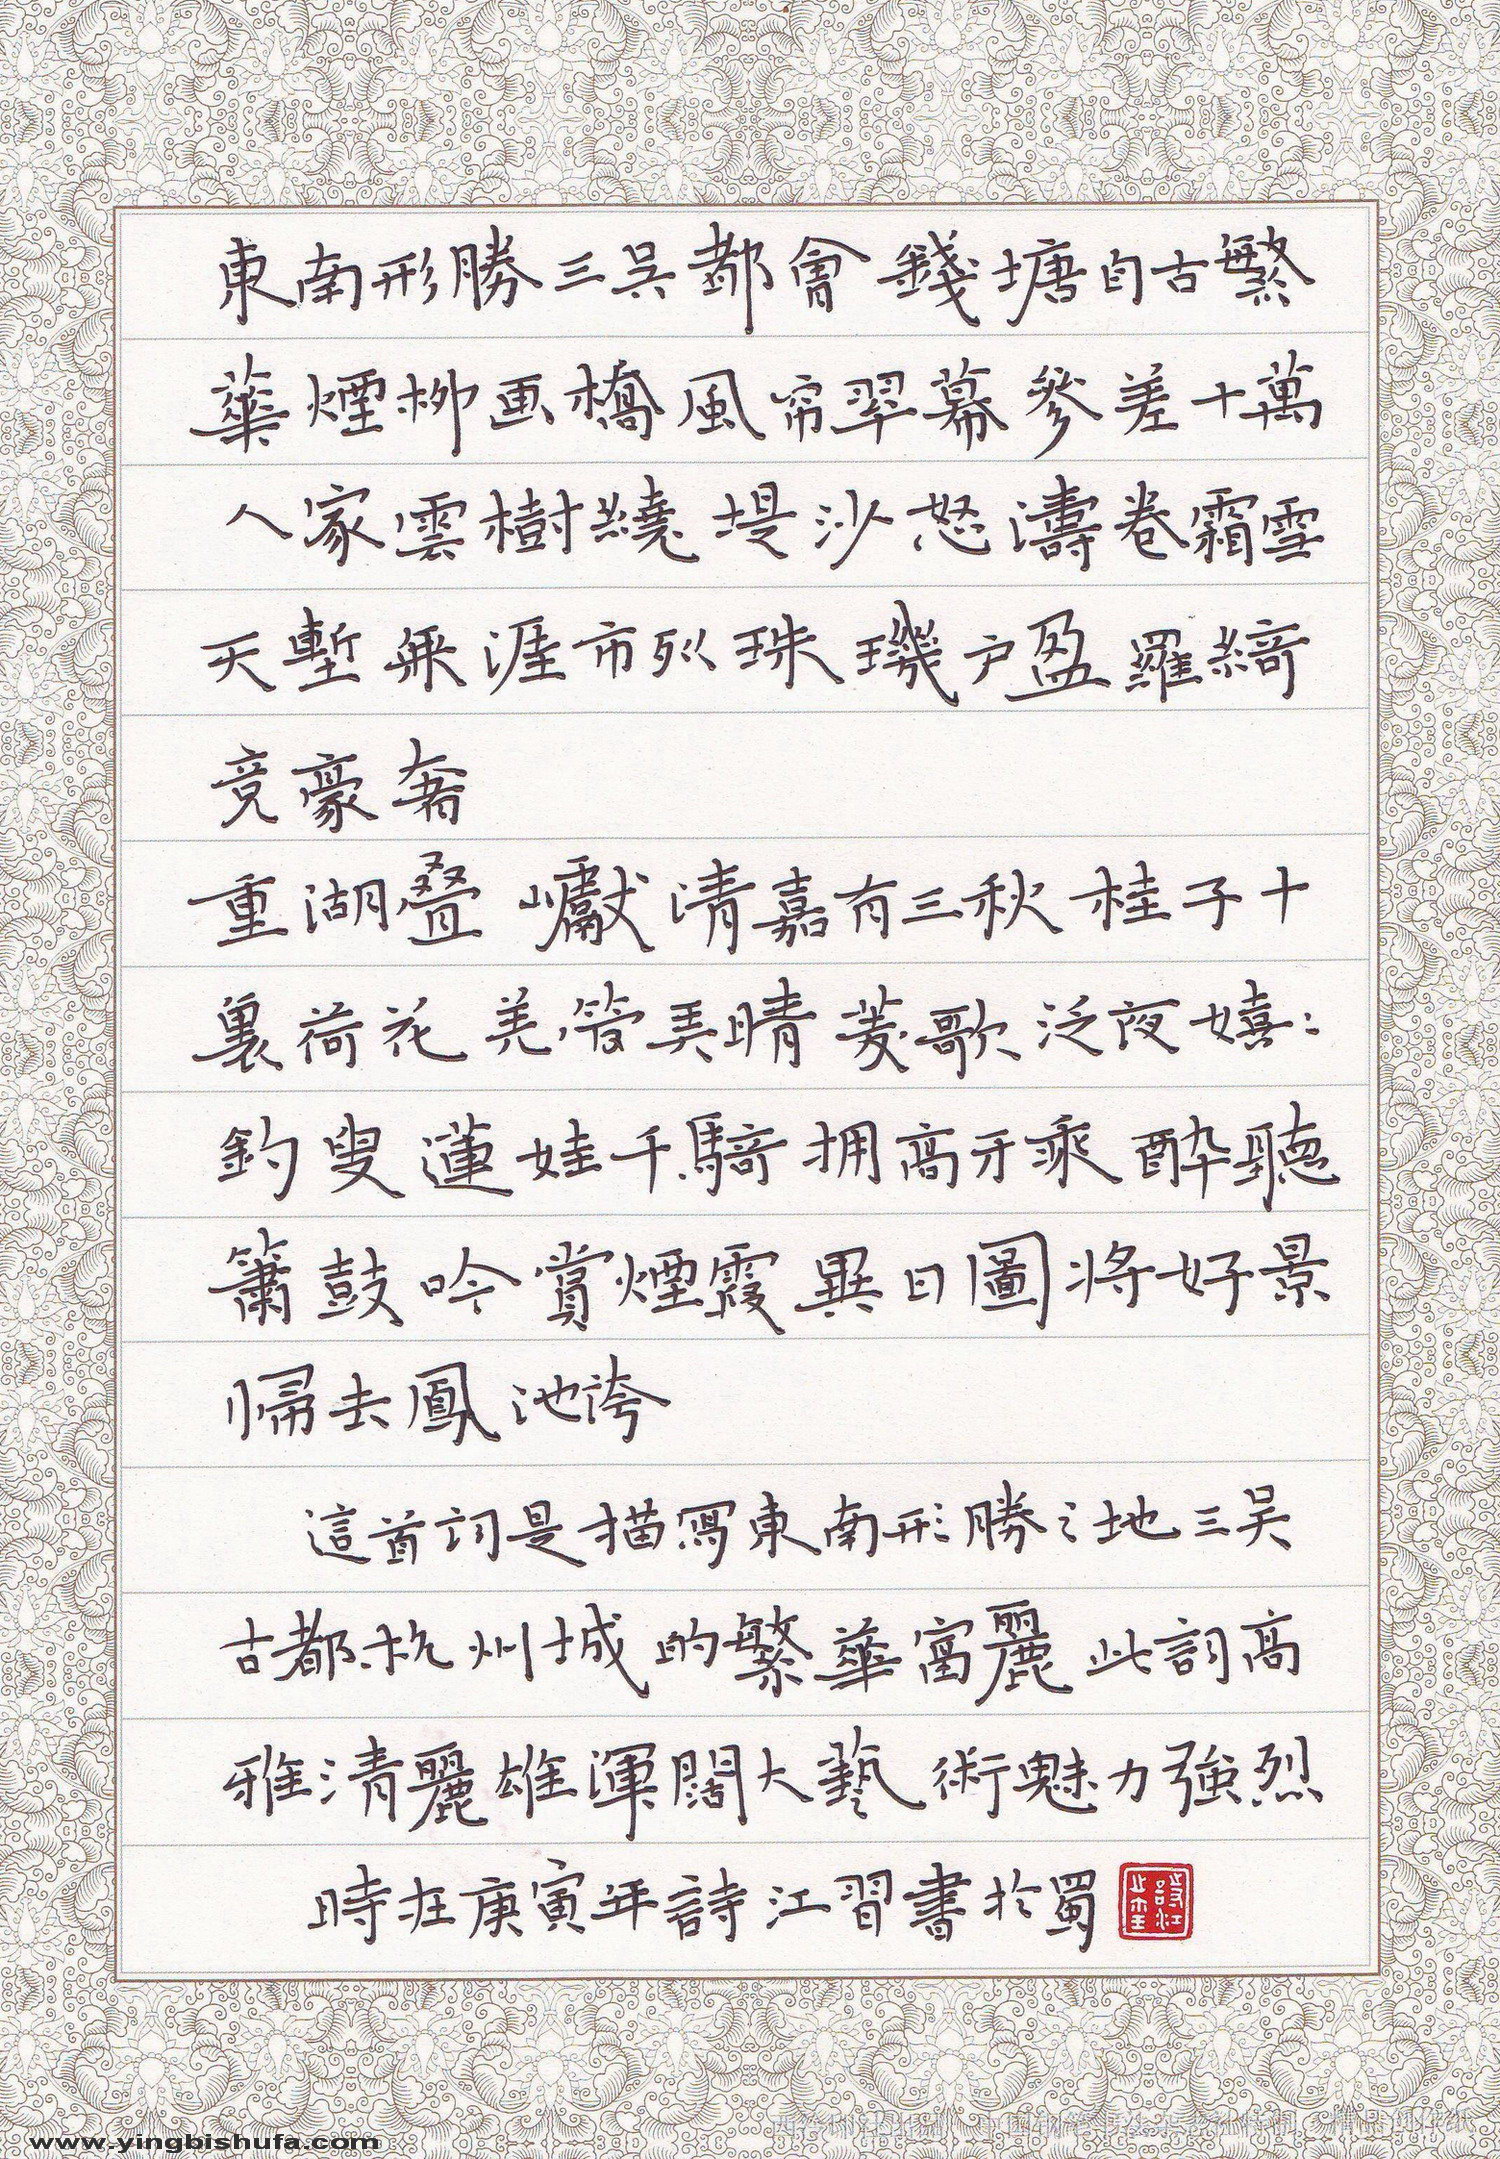 東南形勝三吳都會錢塘自古繁
華煙柳画橋風帘翠幕參差十萬
人家雲樹繞堤沙怒濤卷霜雪
天塹無涯市列珠璣户盈羅綺
竞豪奢
重湖叠巘清嘉有三秋桂子十
裏荷花羌管弄晴菱歌泛夜嬉:
釣叟蓮娃千騎拥高牙乘醉聽
簫鼓吟賞煙霞異日圖將好景
歸去鳳池誇
這首詞是描寫東南形勝之地三吳
古都杭州城的繁華富麗此詞高
雅清麗雄渾闊大藝術魅力強烈
時在庚寅年詩江習書於蜀
www.yingbishufa.com